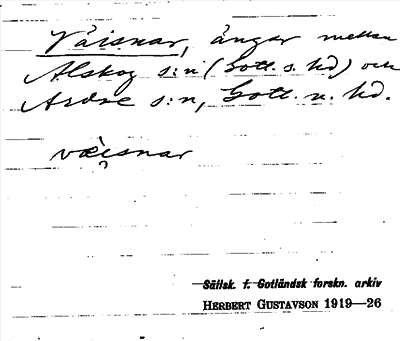 Väisnar, ängar mellan
Alskog s:n (Gotl. s. hd) och
Ardre s:n, Gotl. n. hd.
væi̯snar
Sällsk. f. Gotländsk forskn. arkiv
HERBERT GUSTAVSON 1919—26